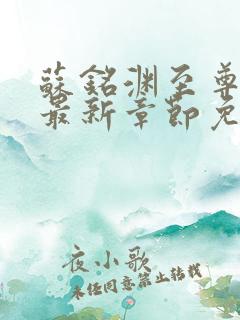 蘇銘渊至尊
最新章節免
夜小歌
未經同意禁止轉載